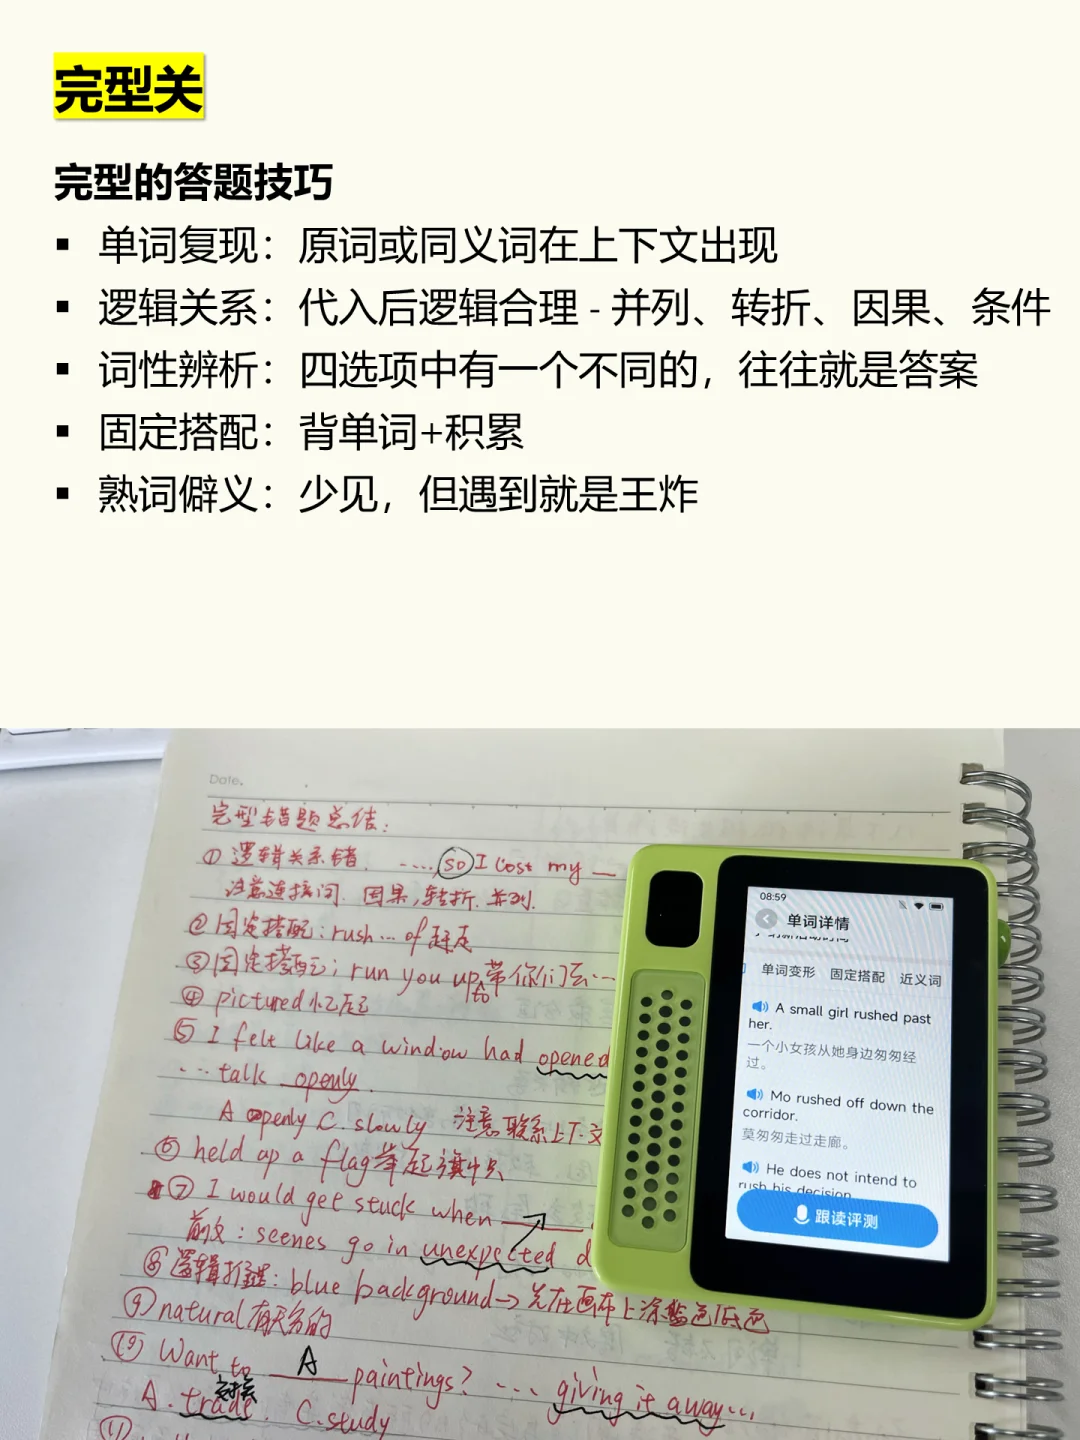 完型关
完型的答题技巧
▪ 单词复现：原词或同义词在上下文出现
▪ 逻辑关系：代入后逻辑合理 - 并列、转折、因果、条件
▪ 词性辨析：四选项中有一个不同的，往往就是答案
▪ 固定搭配：背单词+积累
▪ 熟词僻义：少见，但遇到就是王炸
Date.
完型错题总结：
① 逻辑关系错 ····so I lost my __
注意连接词. 因果,转折.并列.
② 固定搭配：rush … of
③ 固定搭配；run you up to 带你们去…
④ pictured 忆起
⑤ I felt like a window had opened
··· talk openly.
A openly C. slowly 注意联系上下文
⑥ held up a flag 举起旗帜
⑦ I would get stuck when ____
前文：scenes go in unexpected d
⑧ 逻辑推理：blue background→先在画布上涂蓝色底色
⑨ natural 有天分的
⑩ Want to A paintings? ··· giving it away…,
A. trade 交换 C.study
⑪
08:59
单词详情
单词变形 固定搭配 近义词
A small girl rushed past
her.
一个小女孩从她身边匆匆经
过。
Mo rushed off down the
corridor.
莫匆匆走过走廊。
He does not intend to
rush his decision
跟读评测